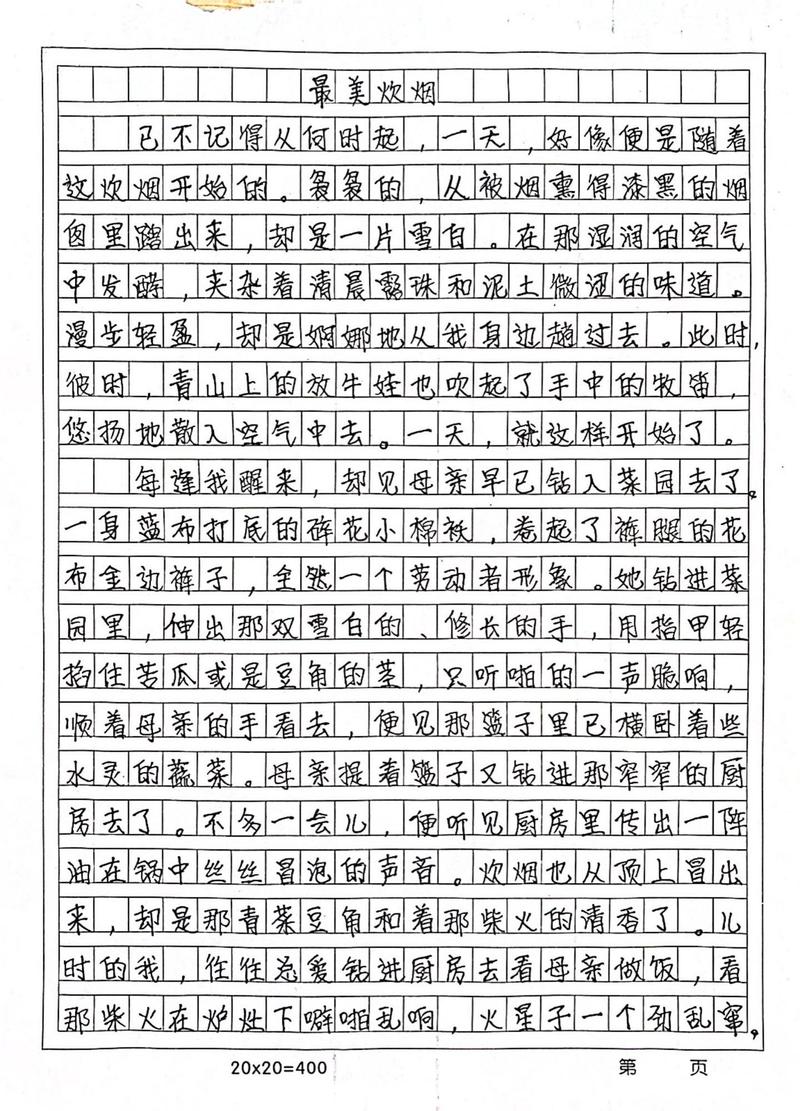 最美炊烟
已不记得从何时起，一天，好像便是随着
这炊烟开始的。袅袅的，从被烟熏得漆黑的烟
囱里踏出来，却是一片雪白。在那湿润的空气
中发酵，夹杂着清晨露珠和泥土微涩的味道。
漫步轻盈，却是婀娜地从我身边趟过去。此时，
彼时，青山上的放牛娃也吹起了手中的牧笛，
悠扬地散入空气中去。一天，就这样开始了。
每逢我醒来，却见母亲早已钻入菜园去了。
一身蓝布打底的碎花小棉袄，卷起了裤腿的花
布金边裤子，全然一个劳动者形象。她钻进菜
园里，伸出那双雪白的、修长的手，用指甲轻
掐住苦瓜或是豆角的茎，只听啪的一声脆响，
顺着母亲的手看去，便见那篮子里已横卧着些
水灵的蔬菜。母亲提着篮子又钻进那窄窄的厨
房去了。不多一会儿，便听见厨房里传出一阵
油在锅中丝丝冒泡的声音。炊烟也从顶上冒出
来，却是那青菜豆角和着那柴火的清香了。儿
时的我，往往总爱钻进厨房去看母亲做饭，看
那柴火在炉灶下噼啪乱响，火星子一个劲乱窜。
20×20=400 第 页